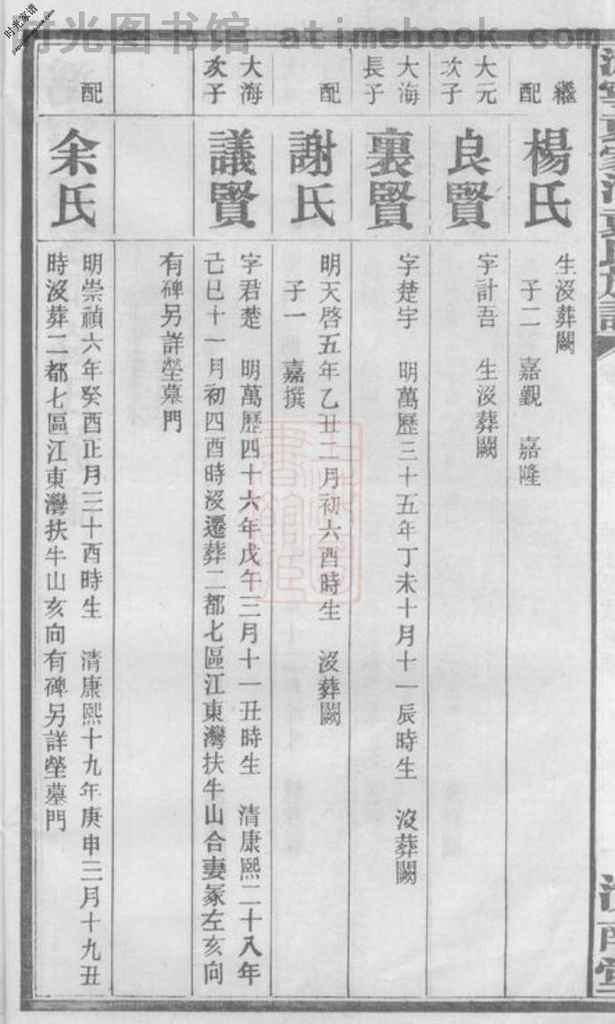 时光图书馆 - atimebook.com
时光家谱
繼配
楊氏
生沒葬闕
子二 嘉觀 嘉隆
大元次子
良賢
字計吾 生沒葬闕
大海長子
裏賢
字楚宇 明萬歷三十五年丁未十月十一辰時生 沒葬闕
配
謝氏
明天啓五年乙丑二月初六酉時生 沒葬闕
子一 嘉撰
大海次子
議賢
字君楚 明萬歷四十六年戊午三月十一丑時生 清康熙二十八年
己巳十一月初四酉時沒遷葬二都七區江東灣扶牛山合妻冢左亥向
有碑另詳塋墓門
配
余氏
明崇禎六年癸酉正月二十酉時生 清康熙十九年庚申三月十九丑
時沒葬二都七區江東灣扶牛山亥向有碑另詳塋墓門